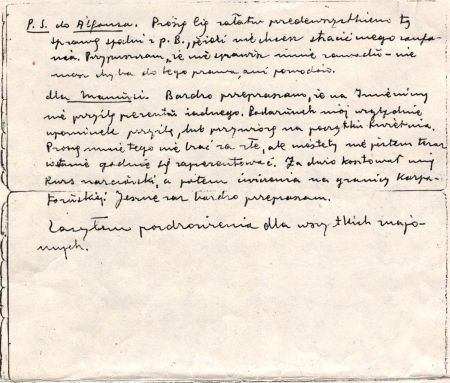 P.S. do Alfonsa. Proszę Cię załatw przedewszystkiem tę
sprawę spodni z p.B., jeżeli nie chcesz stracić mego zaufa-
nia. Przypuszczam, że nie sprawisz mnie zawodu - nie
masz chyba do tego prawa, ani powodów.
dla Mamusi. Bardzo przepraszam, że na Imieniny
nie przyślę prezentu żadnego. Podarunek mój względnie
upominek przyślę, lub przywiozę na początku kwietnia.
Proszę mnie tego nie brać za złe, ale niestety nie jestem teraz
w stanie godnie się zaprezentować. Za dużo kosztował mię
kurs narciarski, a potem ćwiczenia na granicy Karpa-
toruskiej. Jeszcze raz bardzo przepraszam.
Zasyłam pozdrowienia dla wszystkich znajo-
mych.